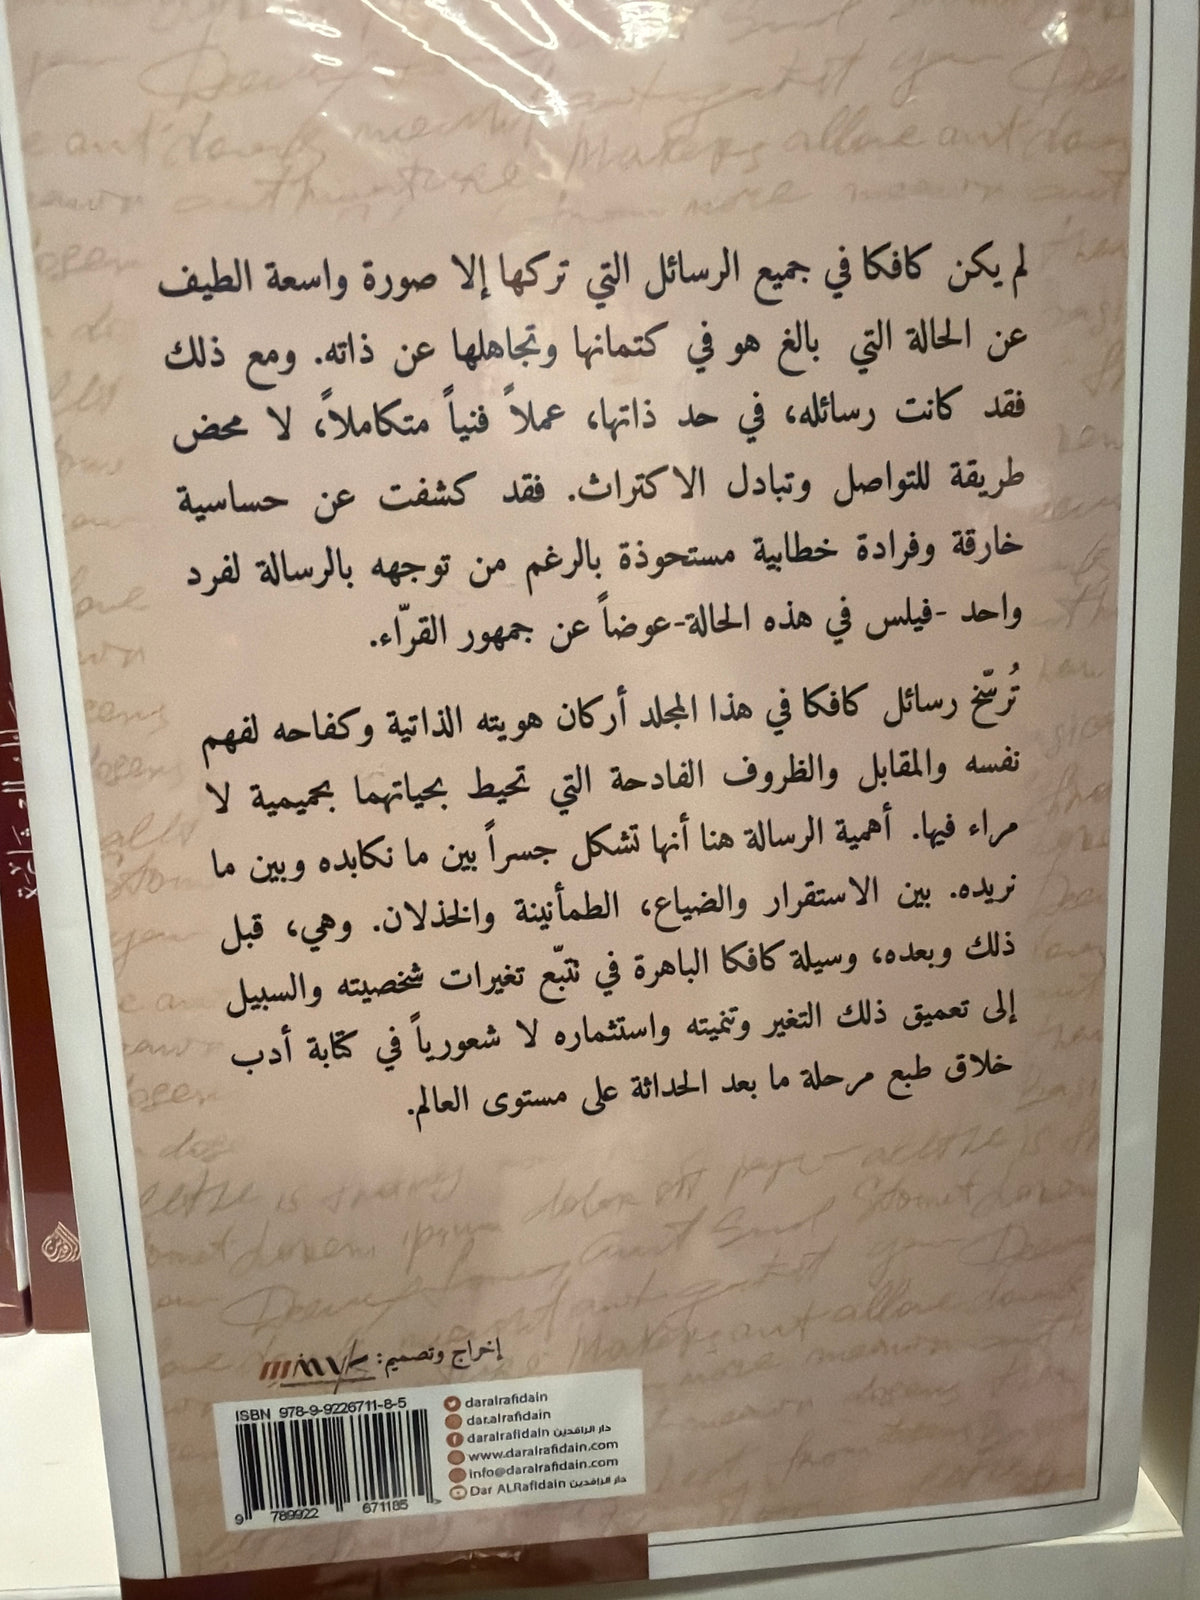 لم يكن كافكا في جميع الرسائل التي تركها إلا صورة واسعة الطيف
عن الحالة التي بالغ هو في كتمانها وتجاهلها عن ذاته. ومع ذلك
فقد كانت رسائله، في حد ذاتها، عملاً فنياً متكاملاً، لا محض
طريقة للتواصل وتبادل الاكتراث. فقد كشفت عن حساسية
خارقة وفرادة خطابية مستحوذة بالرغم من توجهه بالرسالة لفرد
واحد -فيلس في هذه الحالة-عوضاً عن جمهور القرّاء.
تُرسّخ رسائل كافكا في هذا المجلد أركان هويته الذاتية وكفاحه لفهم
نفسه والمقابل والظروف الفادحة التي تحيط بحياتهما بحميمية لا
مراء فيها. أهمية الرسالة هنا أنها تشكل جسراً بين ما نكابده وبين ما
نريده. بين الاستقرار والضياع، الطمأنينة والخذلان. وهي، قبل
ذلك وبعده، وسيلة كافكا الباهرة في تتبّع تغيرات شخصيته والسبيل
إلى تعميق ذلك التغير وتنميته واستثماره لا شعورياً في كتابة أدب
خلاق طبع مرحلة ما بعد الحداثة على مستوى العالم.
إخراج وتصميم:
ISBN 978-9-9226711-8-5
9 789922 671185
daralrafidain
dar.alrafidain
daralrafidain دار الرافدين
www.daralrafidain.com
info@daralrafidain.com
Dar ALRafidain دار الرافدين